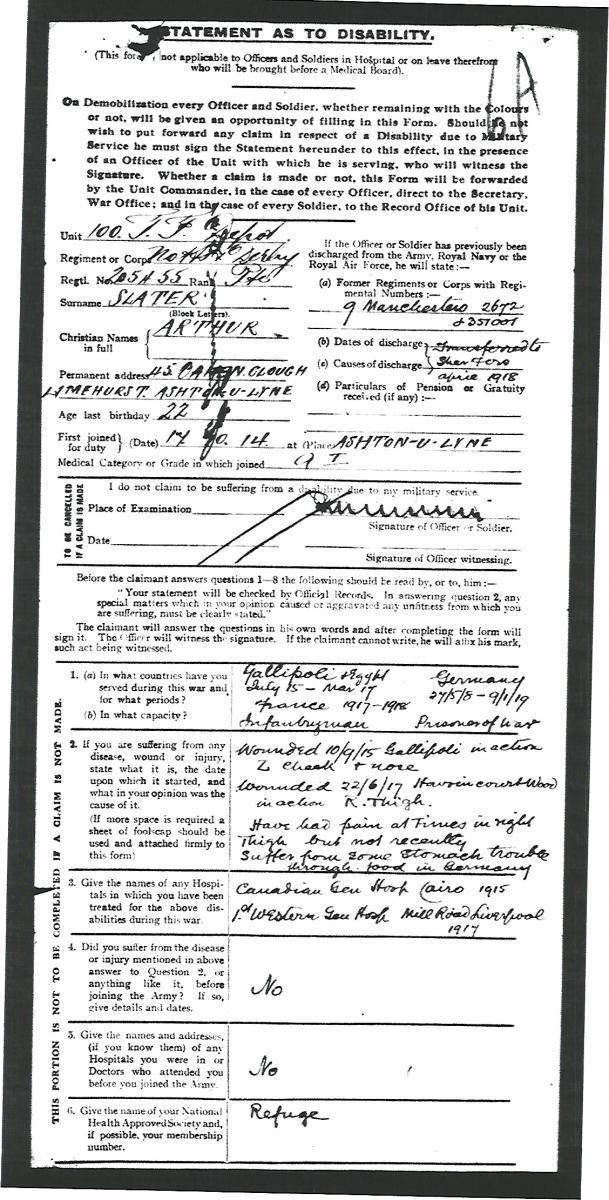 STATEMENT AS TO DISABILITY.
6A
(This form not applicable to Officers and Soldiers in Hospital or on leave therefrom
who will be brought before a Medical Board).
On Demobilization every Officer and Soldier, whether remaining with the Colours
or not, will be given an opportunity of filling in this Form. Should he not
wish to put forward any claim in respect of a Disability due to Military
Service he must sign the Statement hereunder to this effect, in the presence
of an Officer of the Unit with which he is serving, who will witness the
Signature. Whether a claim is made or not, this Form will be forwarded
by the Unit Commander, in the case of every Officer, direct to the Secretary,
War Office; and in the case of every Soldier, to the Record Office of his Unit.
Unit 100. T. F. Depot
Regiment or Corps Notts & Derby
Regtl. No. 205455 Rank Pte
Surname SLATER
(Block Letters).
Christian Names in full ARTHUR
Permanent address 45 CLOUGH
LIMEHURST. ASHTON-U-LYNE
Age last birthday 22
If the Officer or Soldier has previously been
discharged from the Army, Royal Navy or the
Royal Air Force, he will state:—
(a) Former Regiments or Corps with Regi-
mental Numbers :—
9 Manchesters 2672
& 351001
(b) Dates of discharge Transferred to
(c) Causes of discharge Sher Fors
april 1918
(d) Particulars of Pension or Gratuity
received (if any) :—
First joined for duty (Date) 17 10. 14 at (Place ASHTON-U-LYNE
Medical Category or Grade in which joined A I
TO BE CANCELLED
IF A CLAIM IS MADE
I do not claim to be suffering from a disability due to my military service.
Place of Examination
Signature of Officer or Soldier.
Date
Signature of Officer witnessing.
Before the claimant answers questions 1—8 the following should be read by, or to, him :—
"Your statement will be checked by Official Records. In answering question 2, any
special matters which in your opinion caused or aggravated any unfitness from which you
are suffering, must be clearly stated."
The claimant will answer the questions in his own words and after completing the form will
sign it. The Officer will witness the signature. If the claimant cannot write, he will affix his mark,
such act being witnessed.
THIS PORTION IS NOT TO BE COMPLETED IF A CLAIM IS NOT MADE.
1. (a) In what countries have you
served during this war and
for what periods?
(b) In what capacity?
Gallipoli & Egypt Germany
July 15 - Mar 17 27/5/8 - 9/1/19
France 1917-1918
Infantryman Prisoner of War
2. If you are suffering from any
disease, wound or injury,
state what it is, the date
upon which it started, and
what in your opinion was the
cause of it.
(If more space is required a
sheet of foolscap should be
used and attached firmly to
this form)
Wounded 10/9/15 Gallipoli in action
L cheek & nose
Wounded 22/6/17 Havrincourt Wood
in action R. Thigh.
Have had pain at times in right
Thigh but not recently
Suffer from some stomach trouble
through food in Germany
3. Give the names of any Hospi-
tals in which you have been
treated for the above dis-
abilities during this war.
Canadian Gen Hosp Cairo 1915
1st Western Gen Hosp Mill Road Liverpool
1917
4. Did you suffer from the disease
or injury mentioned in above
answer to Question 2, or
anything like it, before
joining the Army? If so,
give details and dates.
No
5. Give the names and addresses,
(if you know them) of any
Hospitals you were in or
Doctors who attended you
before you joined the Army.
No
6. Give the name of your National
Health Approved Society and,
if possible, your membership
number.
Refuge